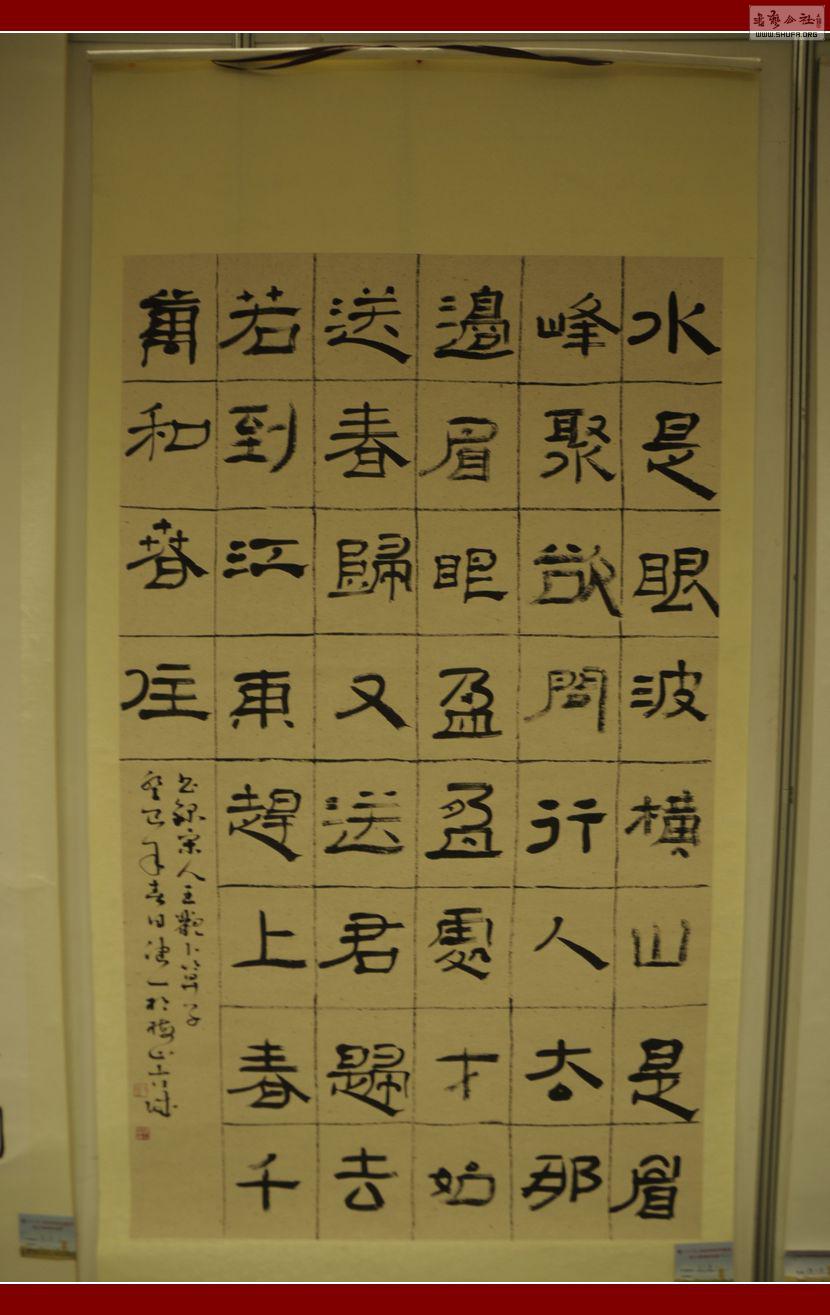 水是眼波橫山是眉
峰聚欲問行人去那
邊眉眼盈盈處才始
送春歸又送君歸去
若到江東趕上春千
萬和春住
書錄宋人王觀卜算子
癸巳年春日一於梅山
書藝公社
WWW.SHUFA.ORG